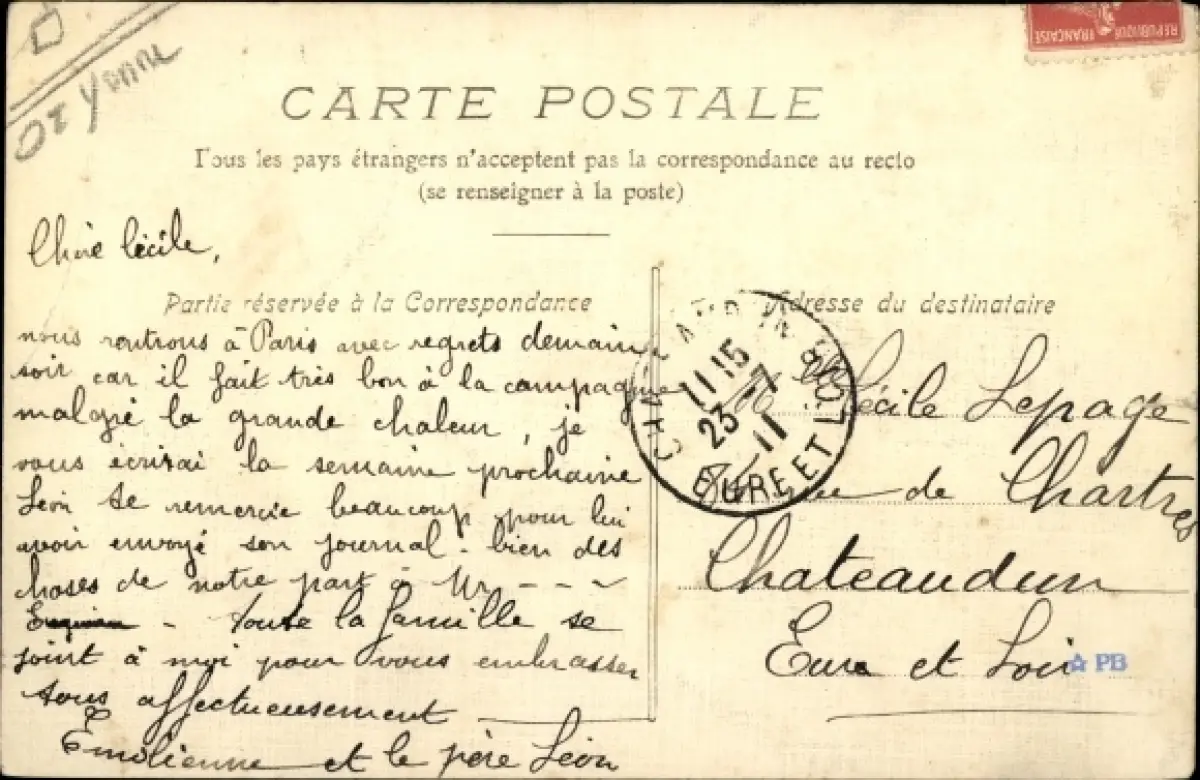 Yonne
RÉPUBLIQUE FRANÇAISE
CARTE POSTALE
Tous les pays étrangers n'acceptent pas la correspondance au recto
(se renseigner à la poste)
Chère Cécile,
Partie réservée à la Correspondance
nous rentrons à Paris avec regrets demain
soir car il fait très bon à la campagne
malgré la grande chaleur, je
vous écrirai la semaine prochaine
Léon te remercie beaucoup pour lui
avoir envoyé son journal - bien des
choses de notre part à Mr - - ~
- toute la famille se
joint à moi pour vous embrasser
tous affectueusement
Emilienne et le père Léon
Adresse du destinataire
11 15
23-7
11
EURE ET LOIR
Cécile Lepage
de Chartres
Chateaudun
Eure et Loir
PB